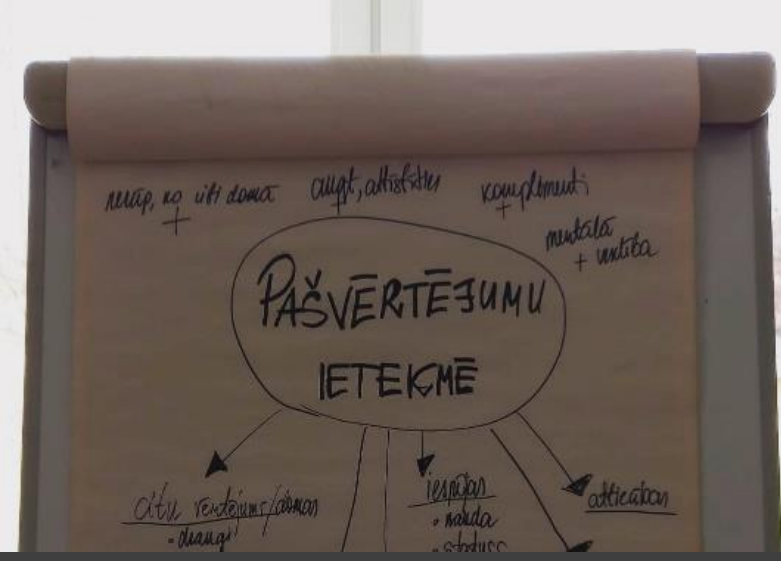 nerūp, ko citi domā
+
augt, attīstīties
+
komplimenti
+
mentālā
+ veselība
PAŠVĒRTĒJUMU
IETEKMĒ
citu vērtējums/domas
• draugi
iespējas
• nauda
• statuss
attiecības